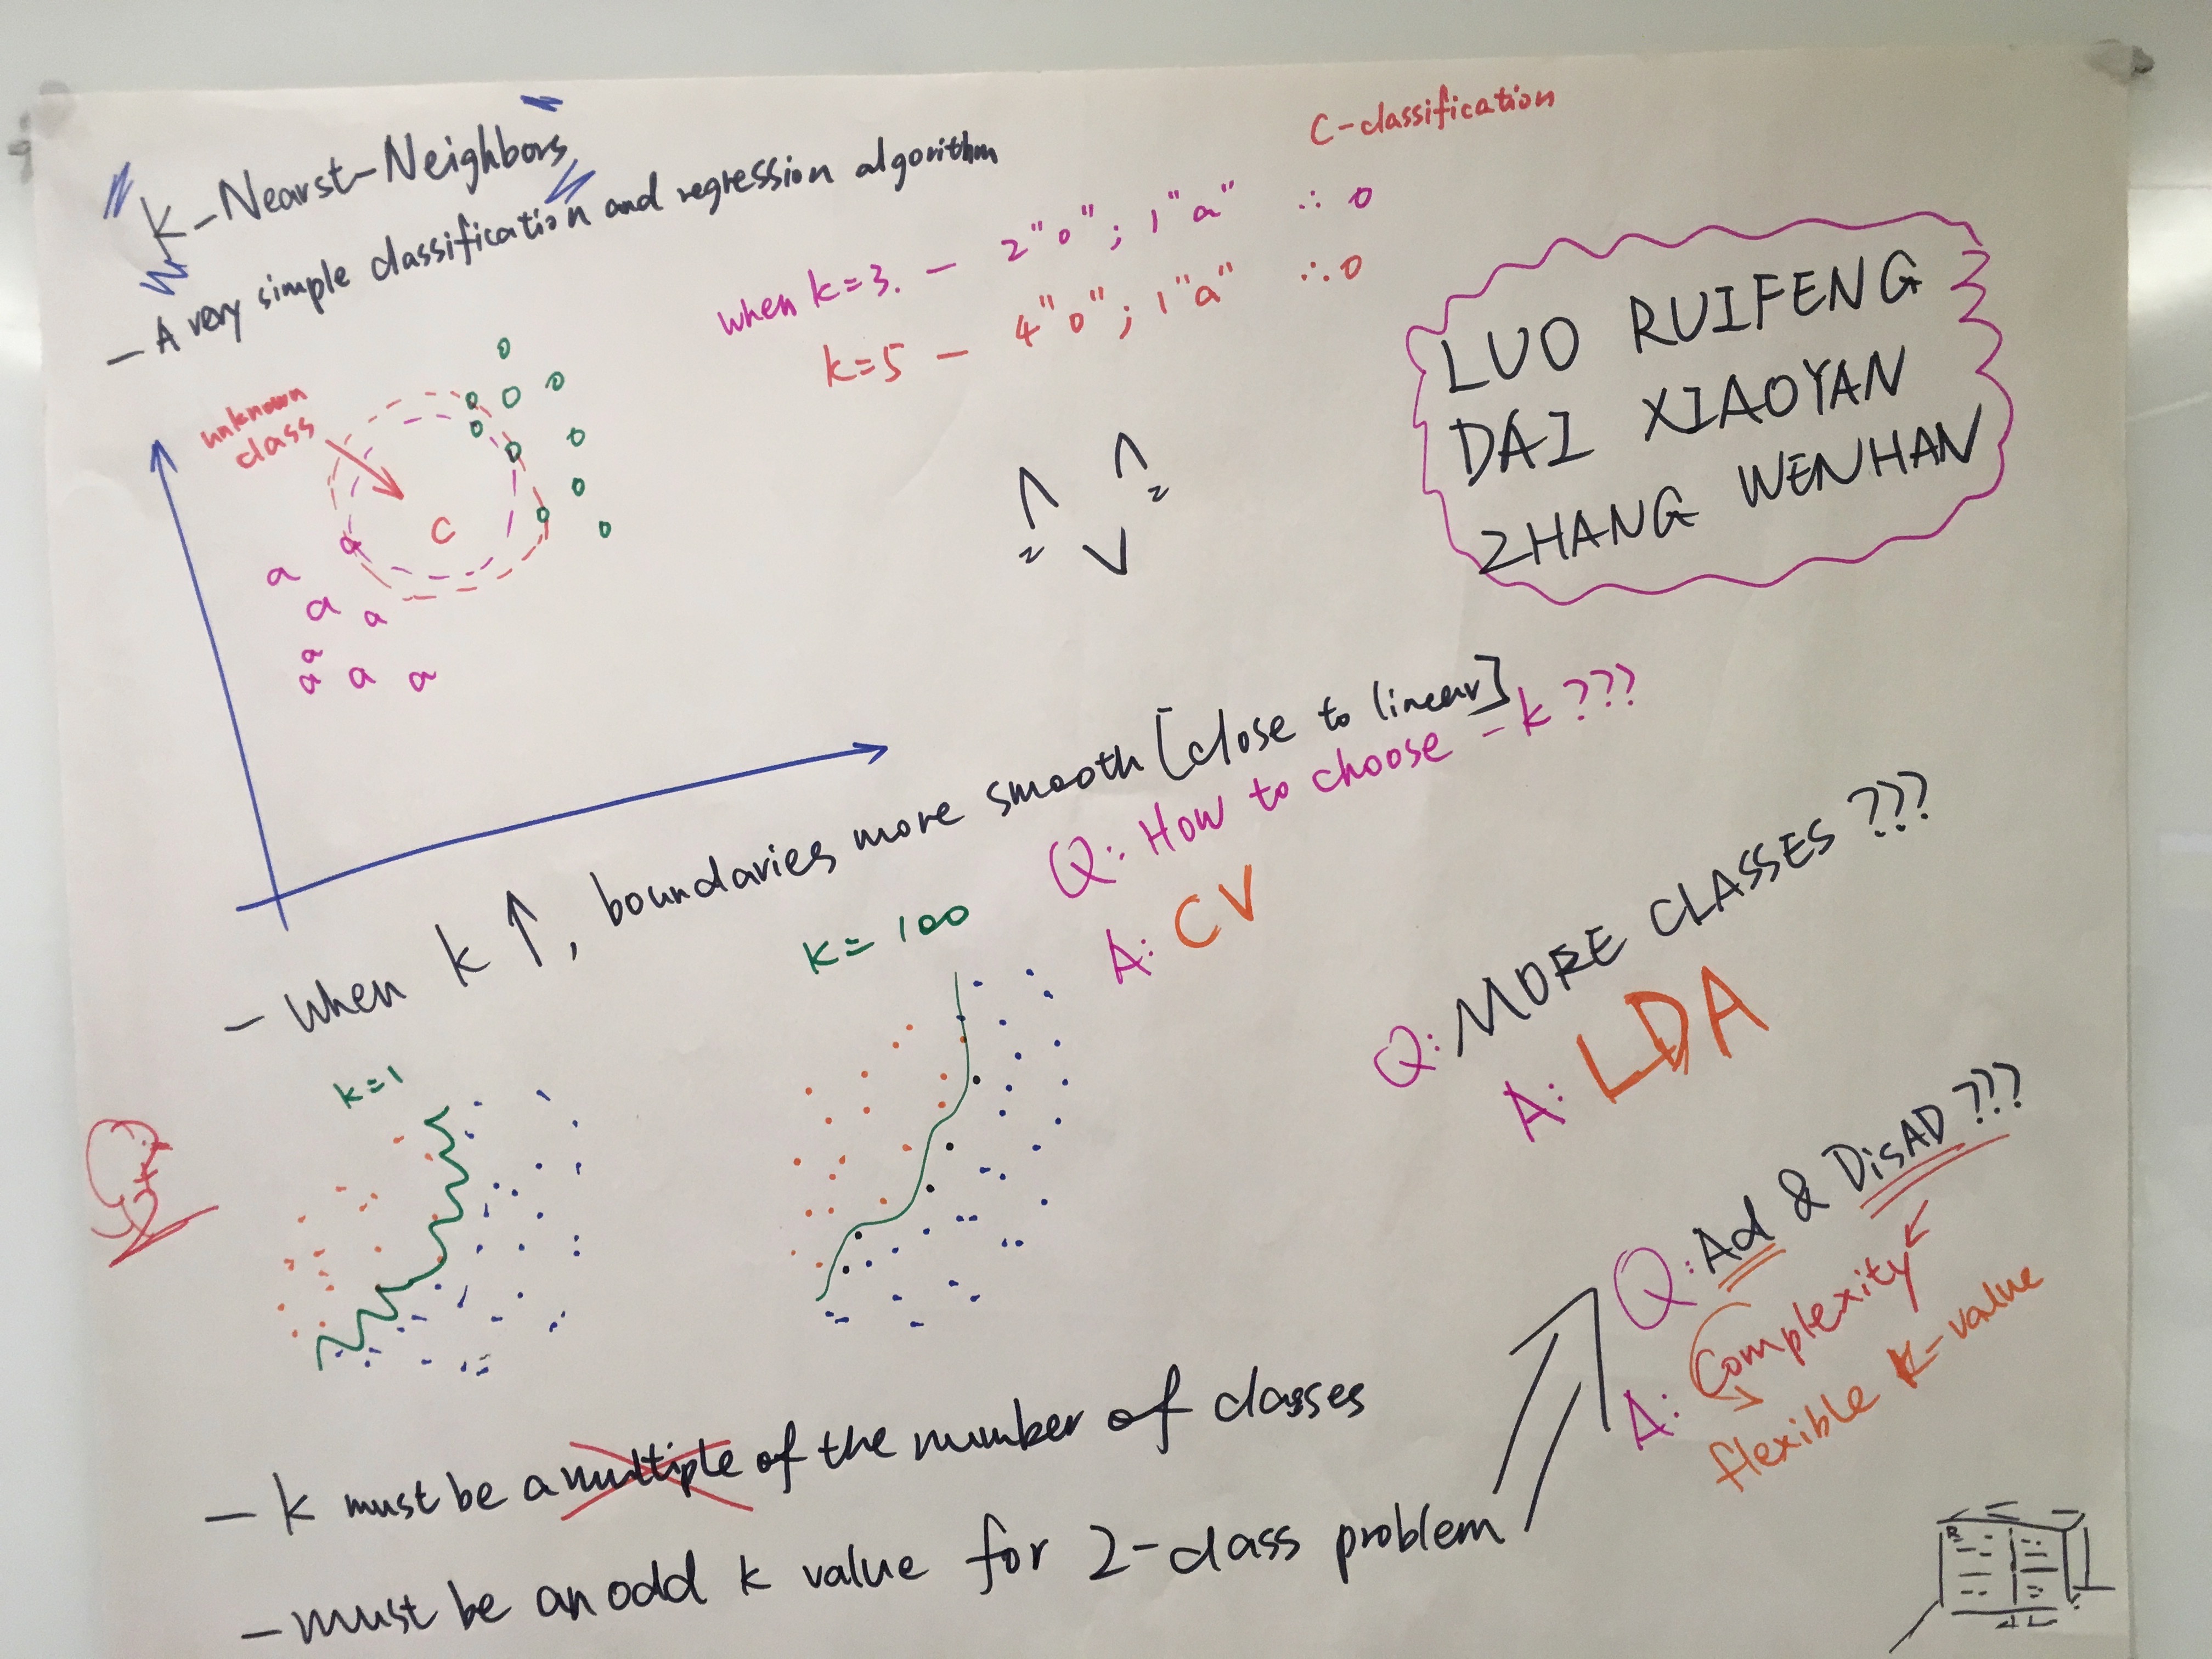 K-Nearst-Neighbors
- A very simple classification and regression algorithm
C-classification
when k=3. - 2"o"; 1"a" ∴ o
k=5 - 4"o"; 1"a" ∴ o
LUO RUIFENG
DAI XIAOYAN
ZHANG WENHAN
unknown
class
o
o o o
o
o o
o
o o
c
a
a
a a
a
a a a
- When k ↑, boundaries more smooth [close to linear]
Q: How to choose - k ???
A: CV
k=1
k=100
Q: MORE CLASSES ???
A: LDA
Q: Ad & DisAD ???
A: Complexity
flexible k-value
- k must be a multiple of the number of classes
- must be an odd k value for 2-class problem